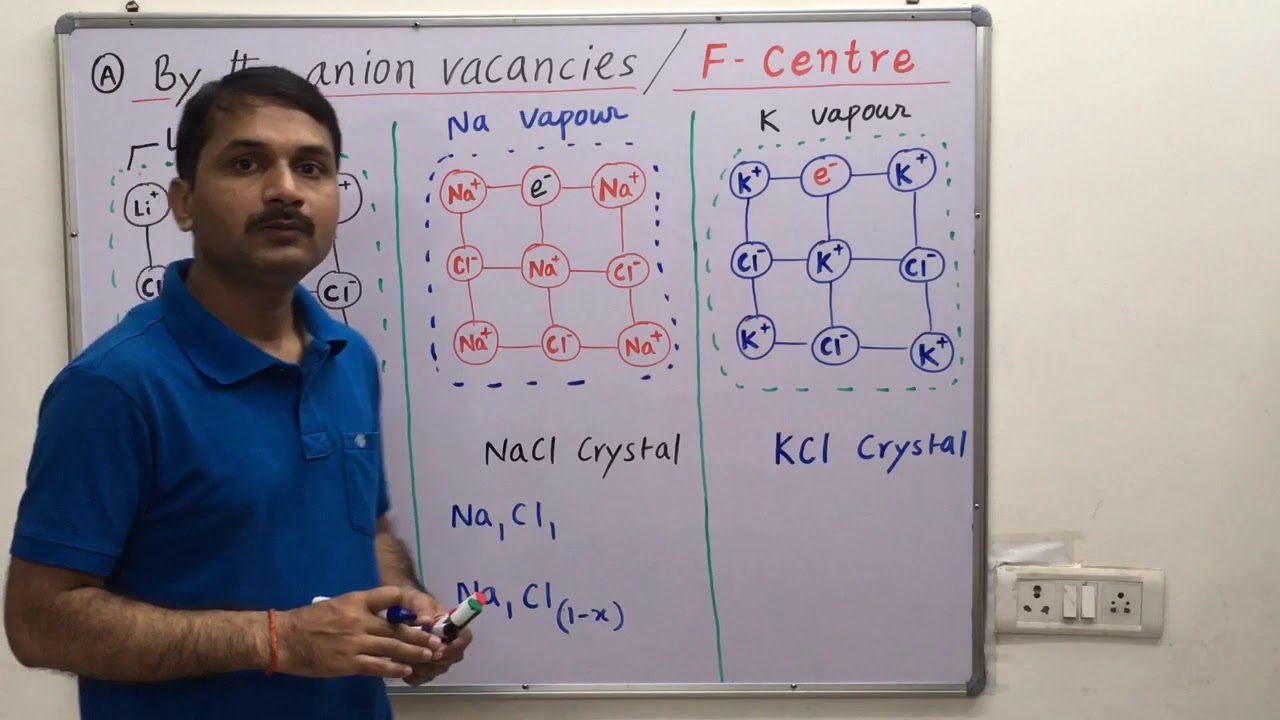 Ⓐ By anion vacancies / F- Centre
Na vapour
K vapour
Li⁺
Cl
Cl⁻
Na⁺ e⁻ Na⁺
Cl⁻ Na⁺ Cl⁻
Na⁺ Cl⁻ Na⁺
K⁺ e⁻ K⁺
Cl⁻ K⁺ Cl⁻
K⁺ Cl⁻ K⁺
NaCl Crystal
KCl Crystal
Na₁Cl₁
Na₁Cl₍₁₋ₓ₎